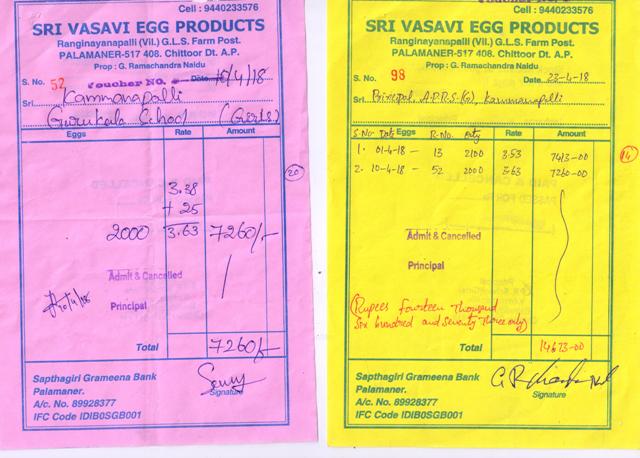 Cell : 9440233576
SRI VASAVI EGG PRODUCTS
Ranginayanapalli (Vil.) G.L.S. Farm Post.
PALAMANER-517 408. Chittoor Dt. A.P.
Prop : G. Ramachandra Naidu
S. No. 52 Voucher NO. Date 10/4/18
Sri. Kammanapalli
Gurukula School (Girls)
Eggs Rate Amount
20
3.38
+ 25
2000 3.63 7260/-
Admit & Cancelled
Principal
10/4/18
Total 7260/-
Sapthagiri Grameena Bank
Palamaner.
A/c. No. 89928377
IFC Code IDIB0SGB001
Signature
Cell : 9440233576
SRI VASAVI EGG PRODUCTS
Ranginayanapalli (Vil.) G.L.S. Farm Post.
PALAMANER-517 408. Chittoor Dt. A.P.
Prop : G. Ramachandra Naidu
S. No. 98 Date 22-4-18
Sri. Principal, A.P.R.S (G), Kammanapalli
S.No Date Eggs R-No. Qty Rate Amount
1. 01-4-18 - 13 2100 3.53 7413-00
2. 10-4-18 - 52 2000 3.63 7260-00
14
Admit & Cancelled
Principal
(Rupees fourteen Thousand
Six hundred and Seventy Three only)
Total 14673-00
Sapthagiri Grameena Bank
Palamaner.
A/c. No. 89928377
IFC Code IDIB0SGB001
Signature